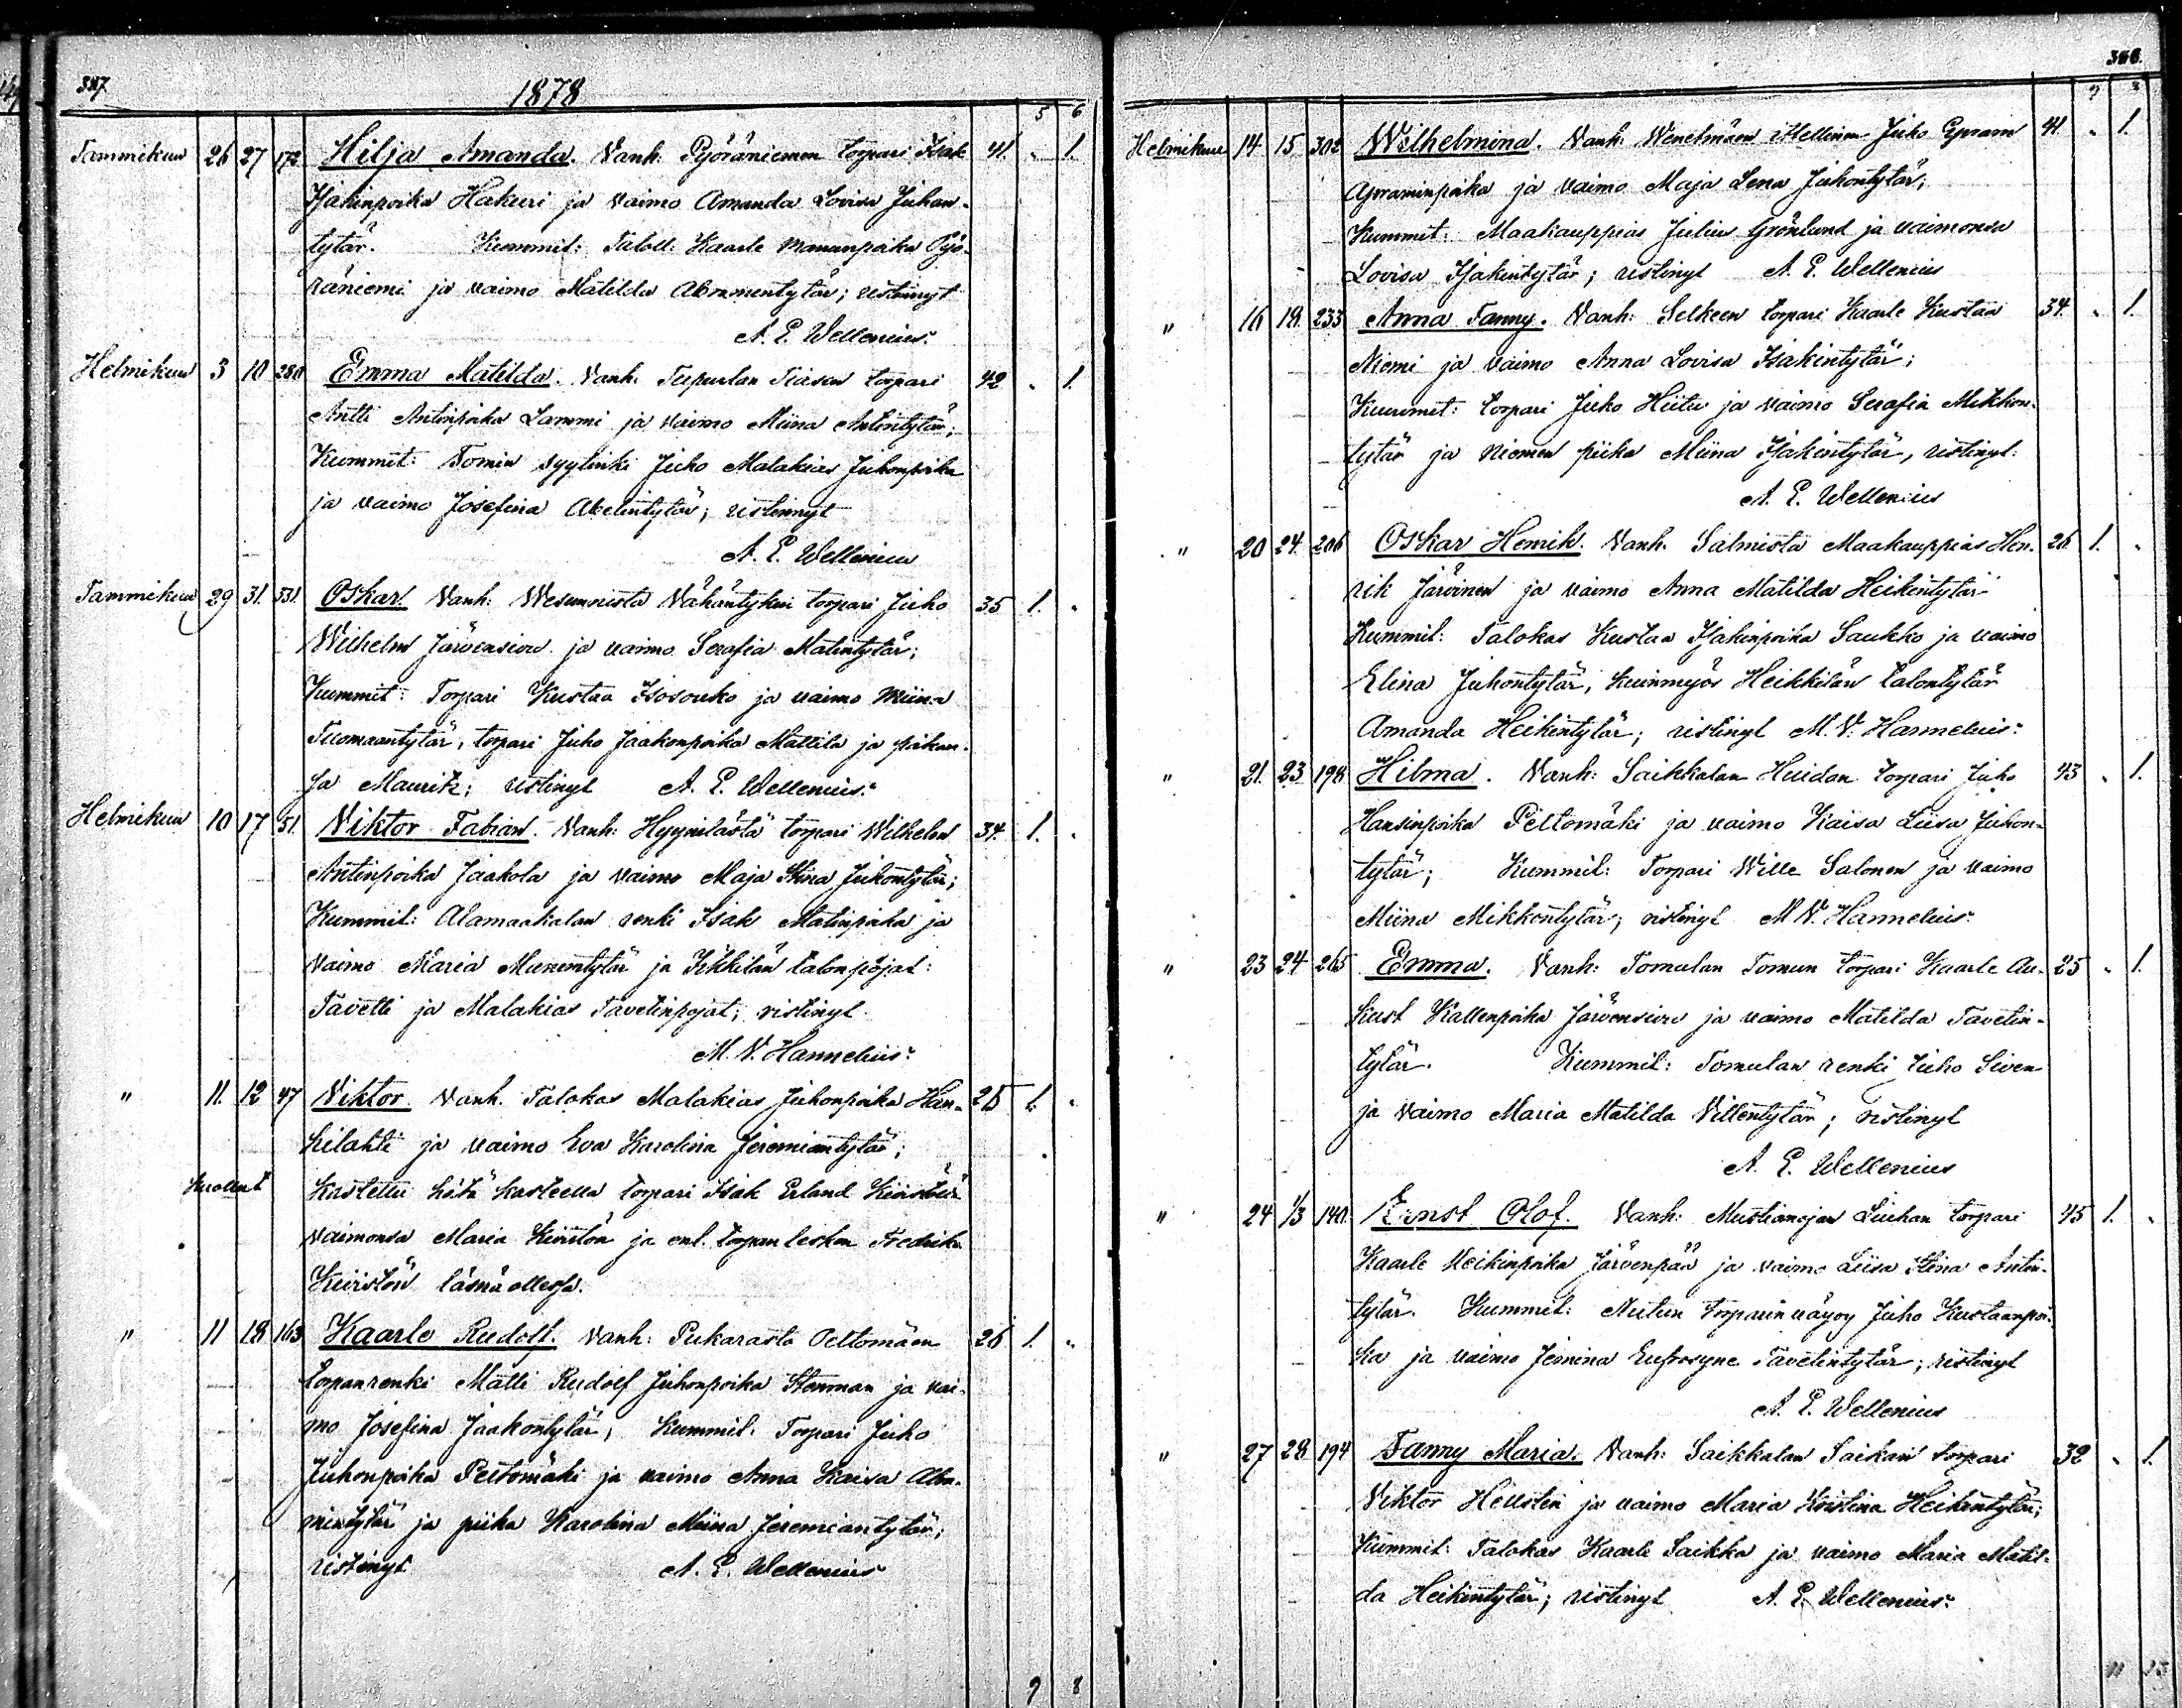 347
1878
5 6
Tammikuu 26 27 172 Hilja Amanda. Vanh: Pyöräniemen torpari Isak 41. " 1.
Isakinpoika Hakuri ja vaimo Amanda Lovisa Juhan-
tytär. Kummit: Taloll: Kaarle Mananpoika Pyö-
räniemi ja vaimo Matilda Abramentytär; ristinnyt
A. E. Wellenius.
Helmikuu 3 10 280 Emma Matilda. Vanh. Teepurlan Tiasen torpari 42 " 1.
Antti Antinpoika Lammi ja vaimo Miina Antintytär;
Kummit: Tomin syytinki Juho Malakias Juhonpoika
ja vaimo Josefina Abelintytär; ristinnyt
A. E. Wellenius
Tammikuu 29 31. 331. Oskar. Vanh: Wesunnista Vähäntykin torpari Juho 35 1. "
Wilhelm Järvensivu ja vaimo Serafia Matintytär;
Kummit: Torpari Kustaa Isosouko ja vaimo Miina
Tuomaantytär, torpari Juho Jaakonpoika Mattila ja poikan-
sa Mauritz; ristinyt A. E. Wellenius.
Helmikuu 10 17 51. Viktor Fabian. Vanh: Hyynilästä torpari Wilhelm 34. 1. "
Antinpoika Jaakola ja vaimo Maja Stina Juhontytär;
Kummit: Alamaakalan renki Isak Matinpoika ja
vaimo Maria tytär ja Ikkilän talonpojat:
Tavetti ja Malakias Tavetinpojat; ristinyt
M. V. Hannelius.
" 11. 12 47 Viktor Vanh. Talokas Malakias Juhonpoika Han- 25 1. "
hilahti ja vaimo Eva Karolina Jeremiantytär;
Kuollut Kastettu hätä kasteella torpari Isak Erland Kiviston
vaimonsa Maria Kiviston ja ent. torpan lesken Fredrika
Kiviston läsnä ollessa.
" 11 18 163 Kaarle Rudolf. Vanh: Pukarasta Peltomäen 26 1. "
torpanrenki Matti Rudolf Juhonpoika Stenman ja vai-
mo Josefina Jaakontytär; Kummit. Torpari Juho
Juhonpoika Peltomäki ja vaimo Anna Kaisa Abra-
mintytär ja piika Karolina Miina Jeremiantytär;
ristinyt A. E. Wellenius
9 8
348.
7 8
Helmikuu 14 15 302 Wilhelmina. Vanh: Wenelmäen itsellinen Juho Epraim 41. " 1.
Apraminpoika ja vaimo Maja Lena Juhontytär;
Kummit: Maakauppias Julius Grönlund ja vaimonsa
Lovisa Isakintytär; ristinyt A. E. Wellenius
" 16 18. 233 Anna Fanny. Vanh: Selkeen torpari Kaarle Kustaa 34. " 1.
Niemi ja vaimo Anna Lovisa Isakintytär;
Kummit: torpari Juho Hiitu ja vaimo Serafia Mikkon-
tytär ja Niemen piika Miina Isakintytär, ristinyt:
A. E. Wellenius
" 20 24. 206 Oskar Henrik. Vanh. Salmista Maakauppias Hen- 26. 1. "
rik Järvinen ja vaimo Anna Matilda Heikintytär
Kummit: Talokas Kustaa Isakinpoika Saukko ja vaimo
Elina Juhontytär, kuinmyös Heikkilän talontytär
Amanda Heikintytär; ristinyt M. V. Hannelius.
" 21. 23 198 Hilma. Vanh: Saikkalan Huidan torpari Juho 43 " 1.
Hansinpoika Peltomäki ja vaimo Kaisa Liisa Juhon-
tytär; Kummit: Torpari Wille Salonen ja vaimo
Miina Mikkontytär; ristinyt M V. Hannelius.
" 23 24 265 Emma. Vanh: Tomulan Tomun torpari Kaarle Au- 25 " 1.
kust Kallenpoika Järvensivu ja vaimo Matilda Tavetin-
tytär. Kummit: Tomulan renki Juho Siven
ja vaimo Maria Matilda Villentytär; ristinyt
A. E. Wellenius
" 24 1/3 140. Ernst Olof. Vanh: Mustianojan Liuhan torpari 45 1. "
Kaarle Heikinpoika Järvenpää ja vaimo Liisa Stina Antin-
tytär. Kummit: torpanvävy Juho Kustaanpoi-
ka ja vaimo Jemina Eufrosyne Tavetintytär; ristinyt
A. E. Wellenius
" 27 28 194 Fanny Maria. Vanh: Saikkalan Saikan torpari 32 " 1.
Viktor Hellsten ja vaimo Maria Kristina Heikintytär;
Kummit: Talokas Kaarle Saikka ja vaimo Maria Matil-
da Heikintytär; ristinyt A. E. Wellenius.